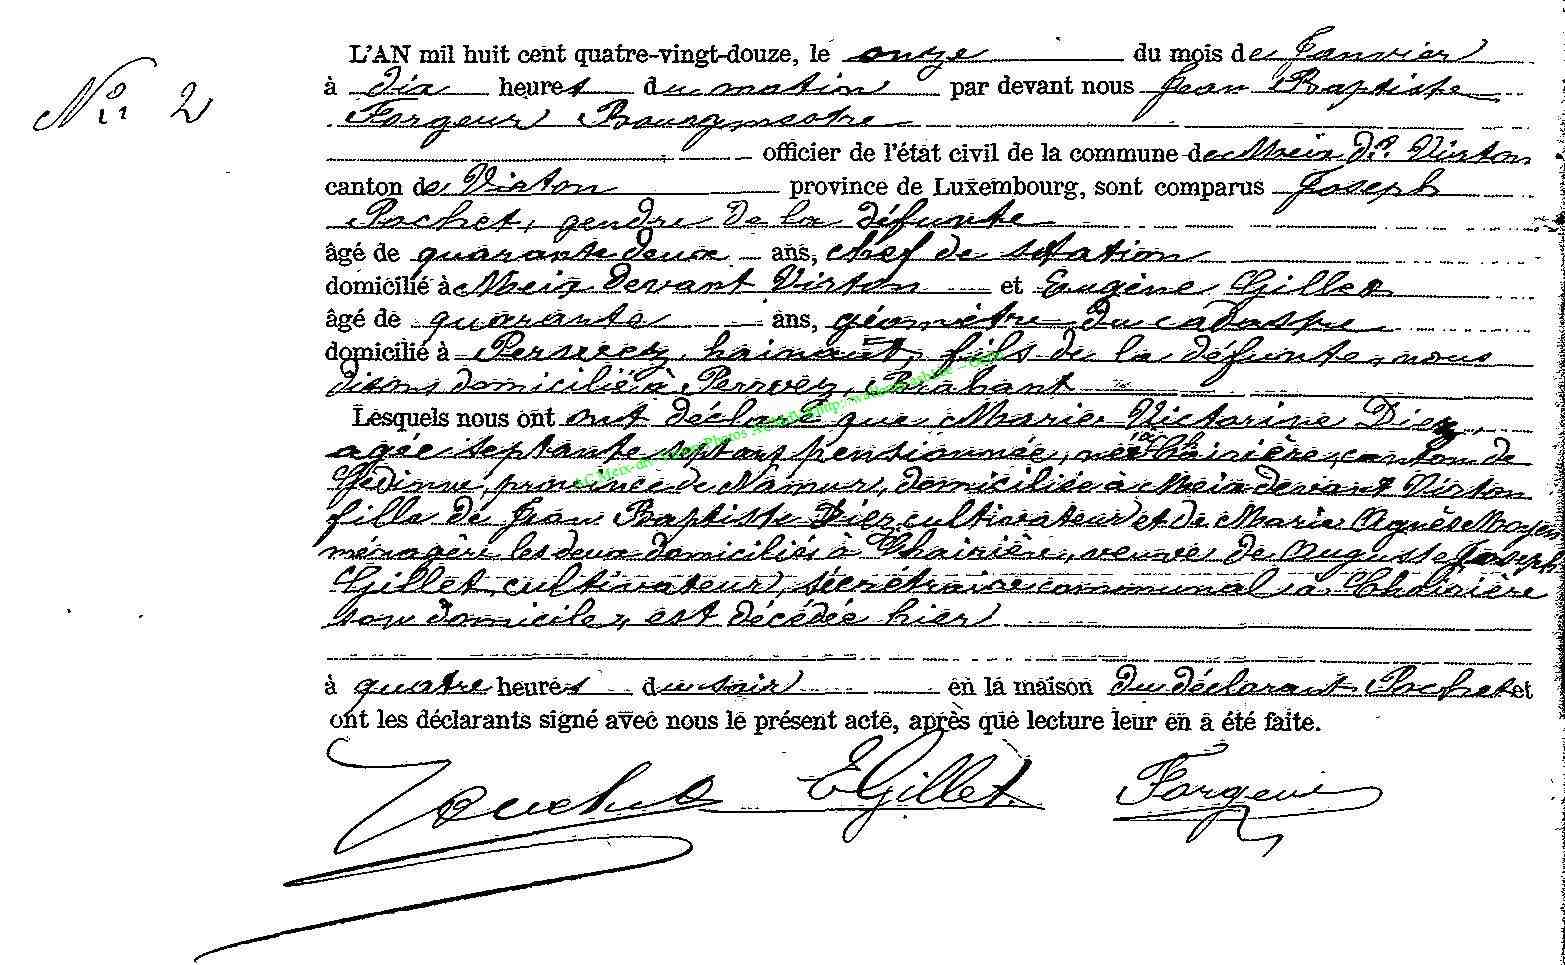 No 2
L'AN mil huit cent quatre-vingt-douze, le onze du mois de Janvier
à dix heures du matin par devant nous Jean Baptiste
Forgeur Bourgmestre
officier de l'état civil de la commune de Meix dt Virton
canton de Virton province de Luxembourg, sont comparus Joseph
Pochet, gendre de la défunte
âgé de quarante deux ans, chef de station
domicilié à Meix devant Virton et Eugène Gillet
âgé de quarante ans, géomètre du cadastre
domicilié à hainaut, fils de la défunte, nous
disons domicilié à Perwez, Brabant
Lesquels nous ont ont déclaré que Marie Victorine Diez,
agée septante sept ans pensionnée, née à Chairière, canton de
Gedinne, province de Namur, domiciliée à Meix devant Virton
fille de Jean Baptiste Diez cultivateur et de Marie Agnès Moyen
ménagère les deux domiciliés à Chairière, veuve de Auguste Joseph
Gillet, cultivateur, secrétaire communal à Chairière
son domicile, est décédée hier
à quatre heures du soir en la maison du déclarant Pochet et
ont les déclarants signé avec nous le présent acte, après que lecture leur en a été faite.
EGillet. Forgeur